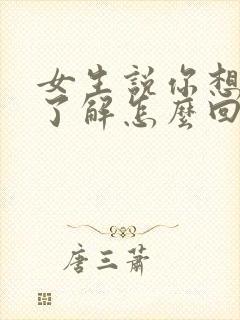 女生說你想
了解怎麼回
唐三蕭